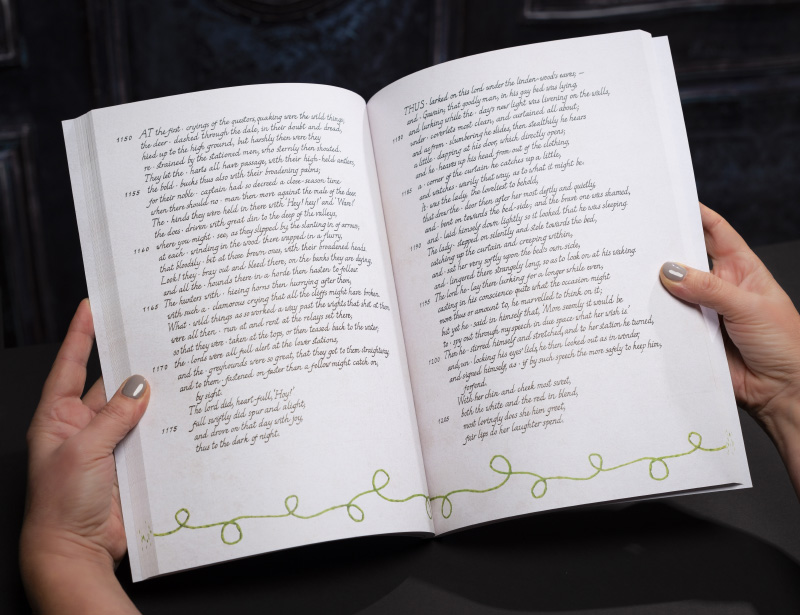 1150 AT the first · cryings of the questors, quaking were the wild things;
the deer · dashed through the dale, in their doubt and dread;
hied up to the high ground, but harshly then were they
re · strained by the stationed men, who sternly then shouted.
They let the · harts all have passage, with their high-held antlers,
1155 the bold · bucks thus also with their broadening palms;
for their noble · captain had so decreed a close-season time
when there should no · man then more against the male of the deer.
The · hinds they were held in there with 'Hey! hey!' and 'Ware!'
the does · driven with great din to the deep of the valleys,
1160 where you might · see, as they slipped by the slanting in of arrows;
at each · winding in the wood there wapped in a flurry,
that bloodily · bit at those brown ones, with their broadened heads.
Look! they · bray out and bleed there, on the banks they are dying,
and all the · hounds there in a horde then hasten to follow.
1165 The hunters with · hieing horns then hurrying after them,
with such a · clamorous crying that all the cliffs might have broken.
What · wild things as so worked a way past the wights that shot at them
were all then · run at and rent at the relays set there,
so that they were · taken at the tops, or then teased back to the water,
1170 the · lords were all full alert at the lower stations,
and the · greyhounds were so great, that they got to them straightway
and to them · fastened on faster than a fellow might catch on,
by sight.
The lord did, heart-full, 'Hey!'
1175 full swiftly did spur and alight,
and drove on that day with joy,
thus to the dark of night.
THUS · larked on this lord under the linden-woods eaves, —
and · Gawain, that goodly man, in his gay bed was lying,
1180 and lurking while the · days new light was livening on the walls,
under · coverlets most clean, and curtained all about;
and as from · slumbering he slides, then stealthily he hears
a little · depping at his door, which directly opens;
and he heaves up his head from out of the clothing,
1185 a · corner of the curtain he catches up a little,
and watches · warily that way, as to what it might be.
It was the · lady, the loveliest to behold,
that drew the · door then after her most deftly and quietly,
and · bent on towards the bed-side; and the brave one was shamed,
1190 and · laid himself down lightly so it looked that he was sleeping.
The lady · stepped on silently and stole towards the bed,
catching up the curtain and creeping within,
and · sat her very softly upon the bed's own side,
and · lingered there strangely long, so as to look on at his waking.
1195 The lord he · lay then lurking for a longer while even,
casting in his conscience quite what the occasion might
move thus or amount to, he marvelled to think on it;
but yet he · said in himself that, 'More seemly it would be
to · spy out through my speech in due space what her wish is.'
1200 Then he · stirred himself and stretched, and to her station he turned,
and, un · locking his eyes' lids, he then looked out as in wonder,
and signed himself, as · if by such speech the more safely to keep him,
forfend.
With her chin and cheek most sweet,
1205 both the white and the red in blend,
most lovingly does she him greet,
fair lips do her laughter spend.